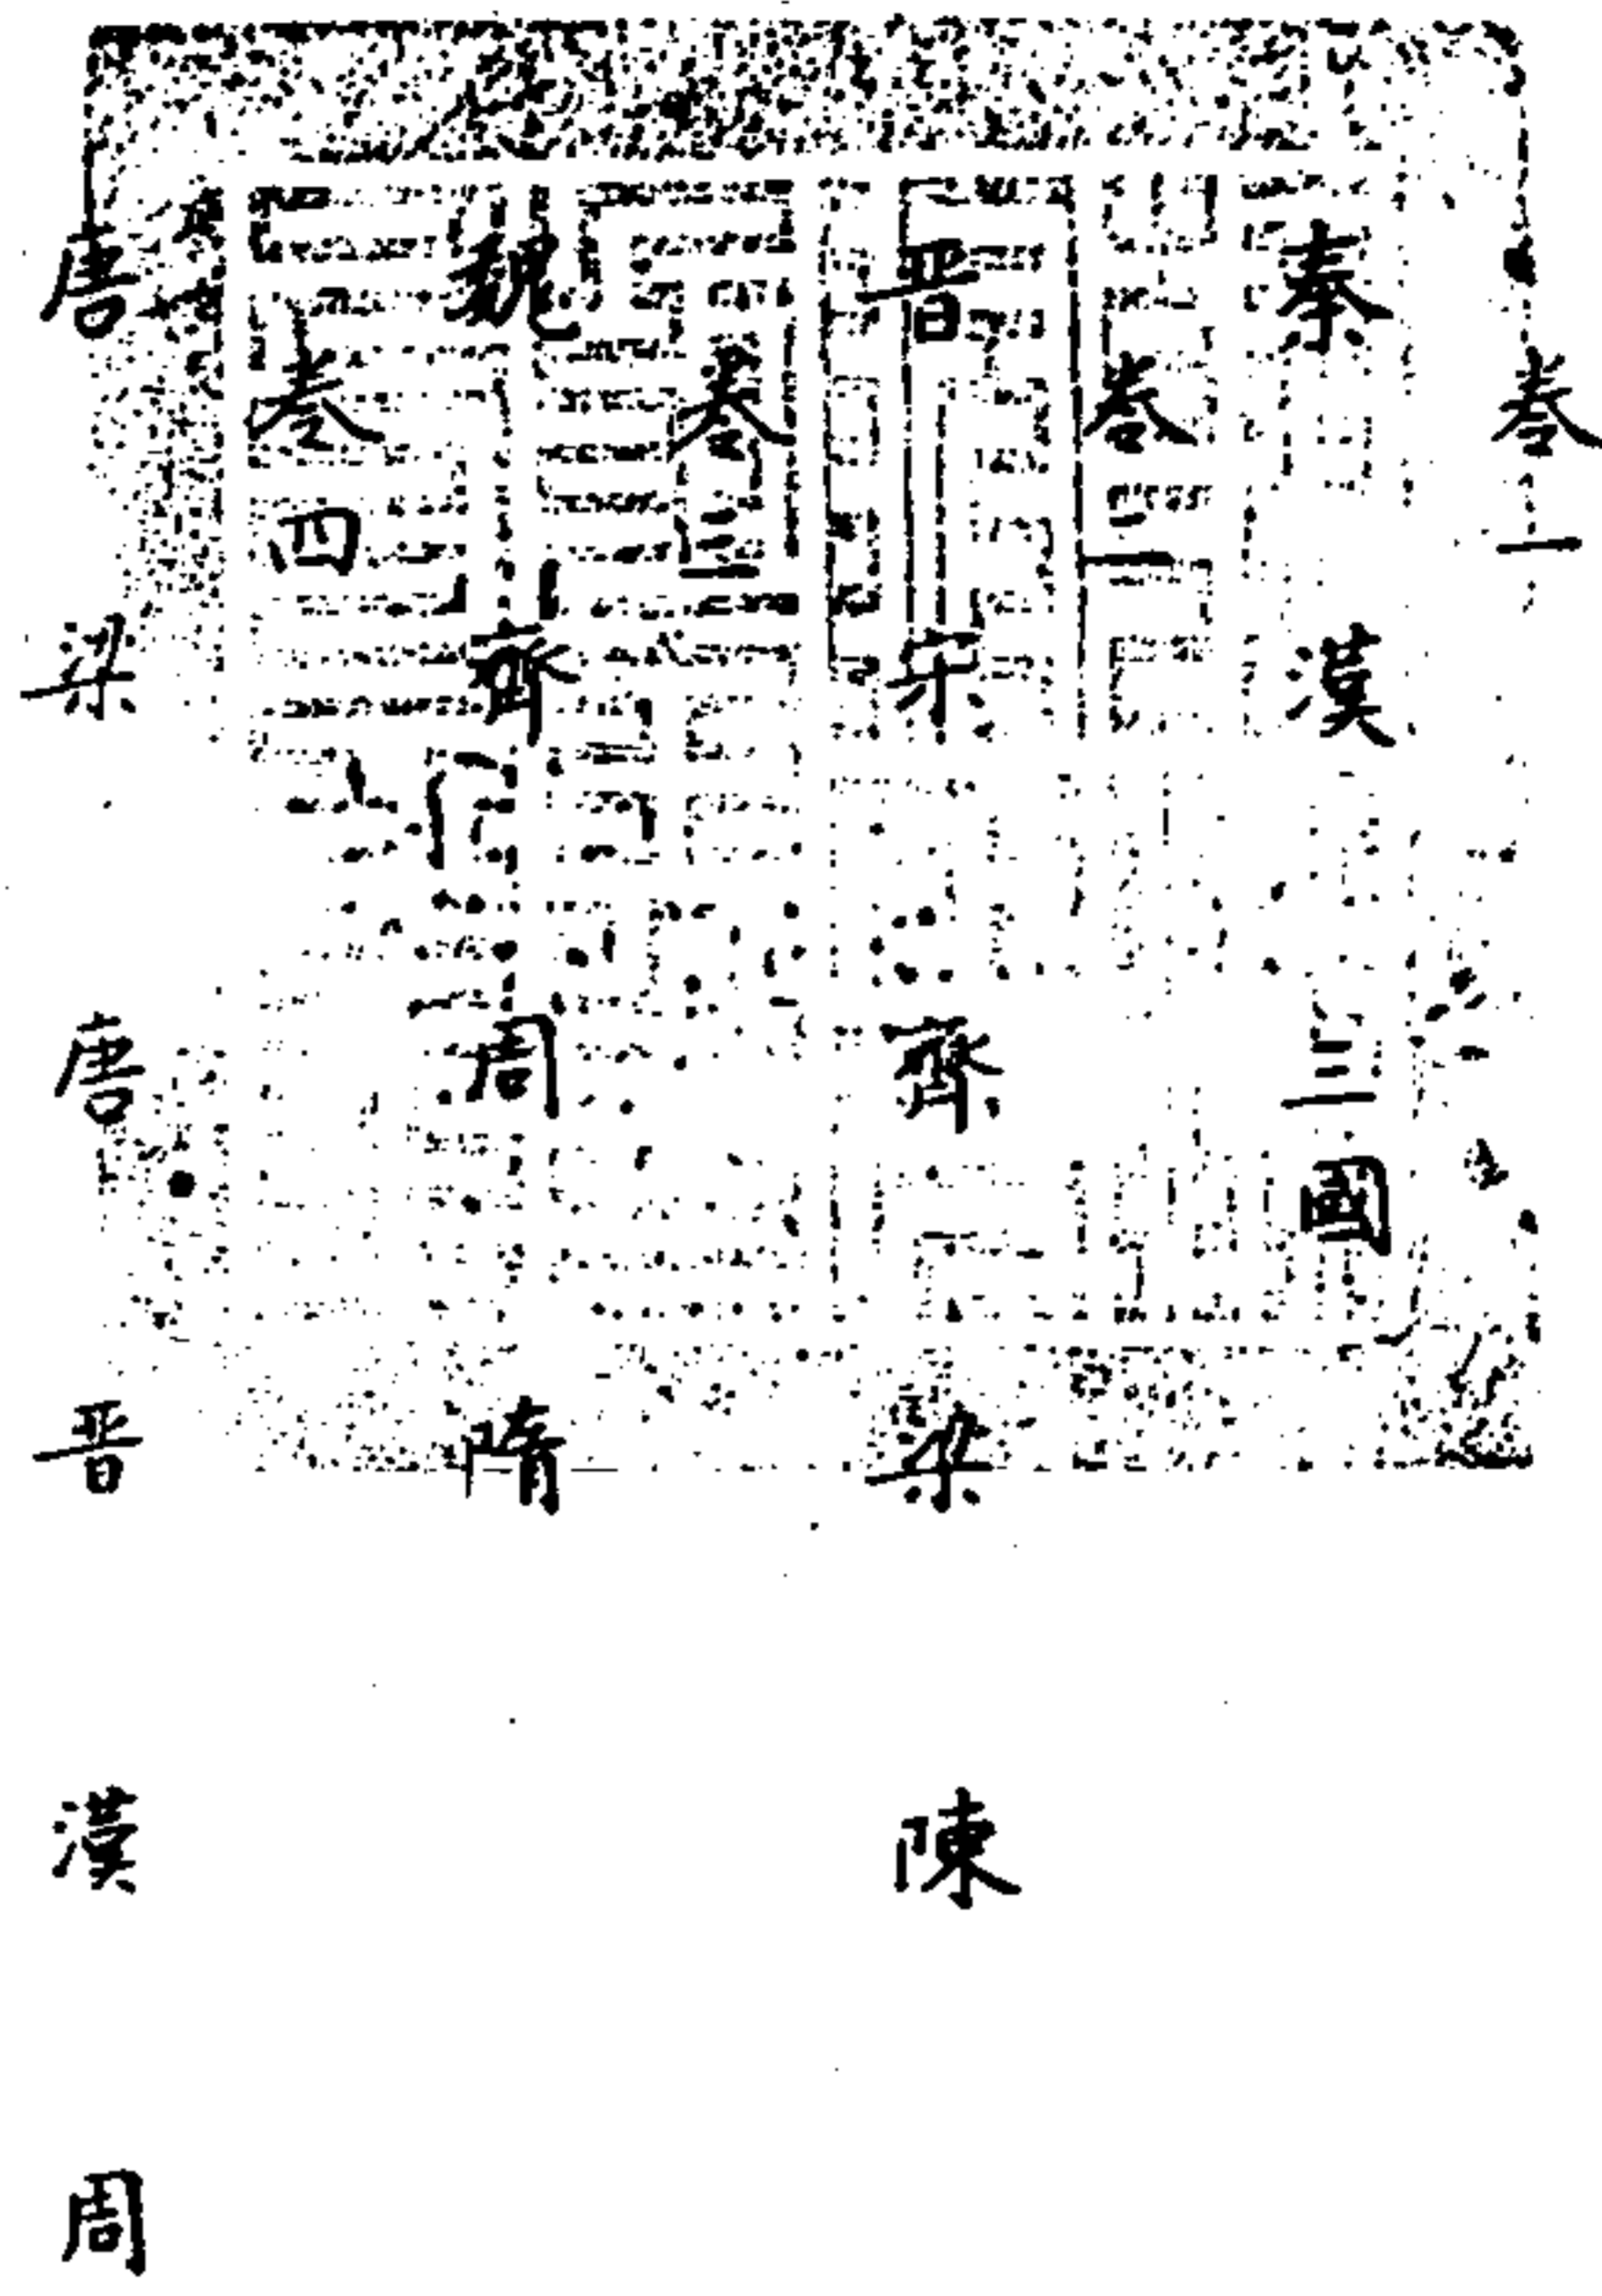 卷一
秦 漢 三國
卷二
晋 宋 齊 梁 陳
卷三
魏 齊 周 隋
卷四
唐 梁 唐 晋 漢 周